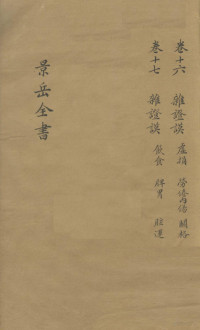 卷十六 雜證謨 虛損 勞倦內傷 關格
卷十七 雜證謨 飲食 脾胃 眩運
景岳全書